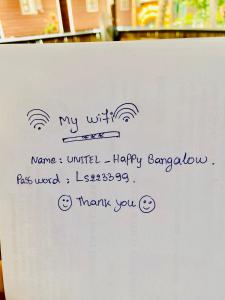 My wifi
Name : UNITEL - Happy Bangalow.
Password : Ls223399.
Thank you